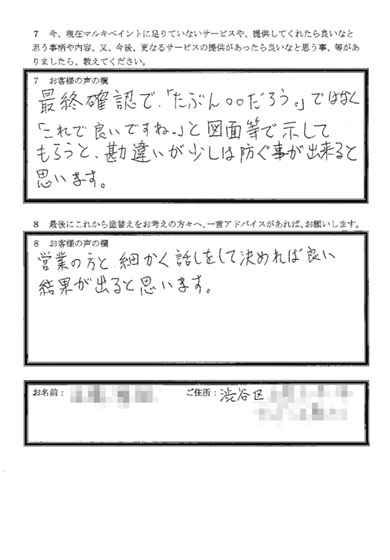 7 今、現在マルキペイントに足りていないサービスや、提供してくれたら良いなと
思う事柄や内容、又、今後、更なるサービスの提供があったら良いなと思う事、等があ
りましたら、教えてください。
7 お客様の声の欄
最終確認で、「たぶん○○だろう。」ではなく
「これで良いですね。」と図面等で示して
もらうと、勘違いが少しは防ぐ事が出来ると
思います。
8 最後にこれから塗替えをお考えの方々へ、一言アドバイスがあれば、お願いします。
8 お客様の声の欄
営業の方と細かく話しをして決めれば良い
結果が出ると思います。
お名前: ご住所: 渋谷区